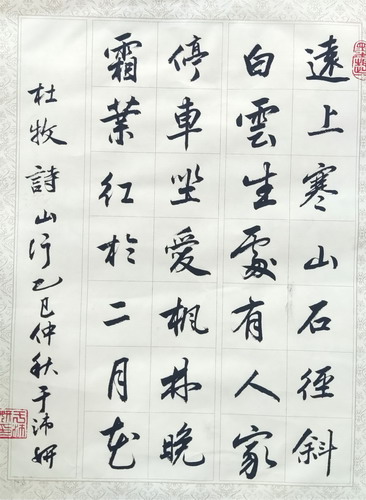 遠上寒山石徑斜
白雲生處有人家
停車坐愛楓林晚
霜葉紅於二月花
杜牧詩山行乙巳仲秋于沛妍